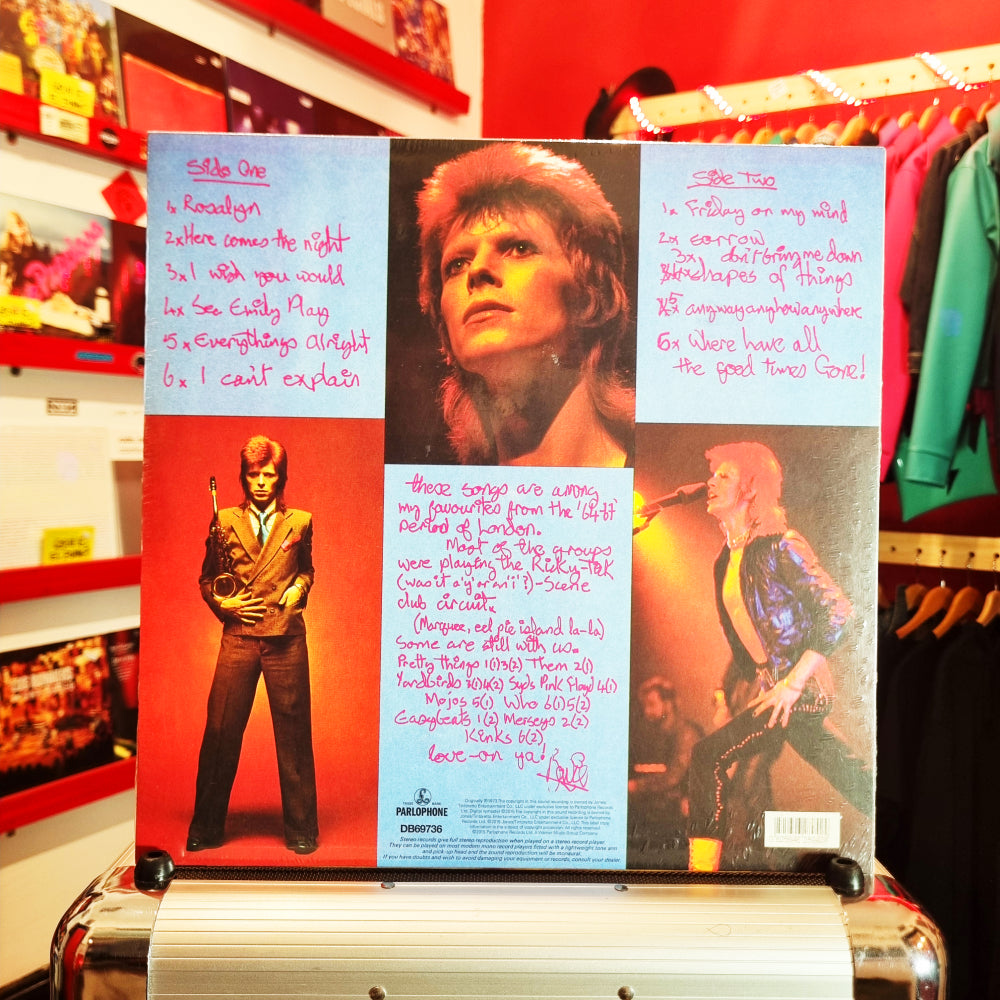 Side One
1x Rosalyn
2x Here comes the night
3x I wish you would
4x See Emily Play
5x Everythings Alright
6x I can't explain
Side Two
1x Friday on my mind
2x sorrow
3x don't bring me down
4x shapes of things
5x anywayanyhowanywhere
6x Where have all
the good times Gone!
these songs are among
my favourites from the '64-67
period of London.
Most of the groups
were playing the Ricky-Tick
(was it a 'y' or an 'i'?)-Scene
club circuit.
(Marquee, eel pie island la-la)
Some are still with us.
Pretty things 1(1)3(2) Them 2(1)
Yardbirds 3(1)4(2) Syd's Pink Floyd 4(1)
Mojos 5(1) Who 6(1)5(2)
Easybeats 1(2) Merseys 2(2)
Kinks 6(2)
love-on ya!
Bowie
PARLOPHONE
DB69736
Stereo records give full stereo reproduction when played on a stereo record player.
They can be played on most modern mono record players fitted with a lightweight tone arm
and pick-up head and the sound reproduction will be monaural.
If you have doubts and wish to avoid damaging your equipment or records, consult your dealer.